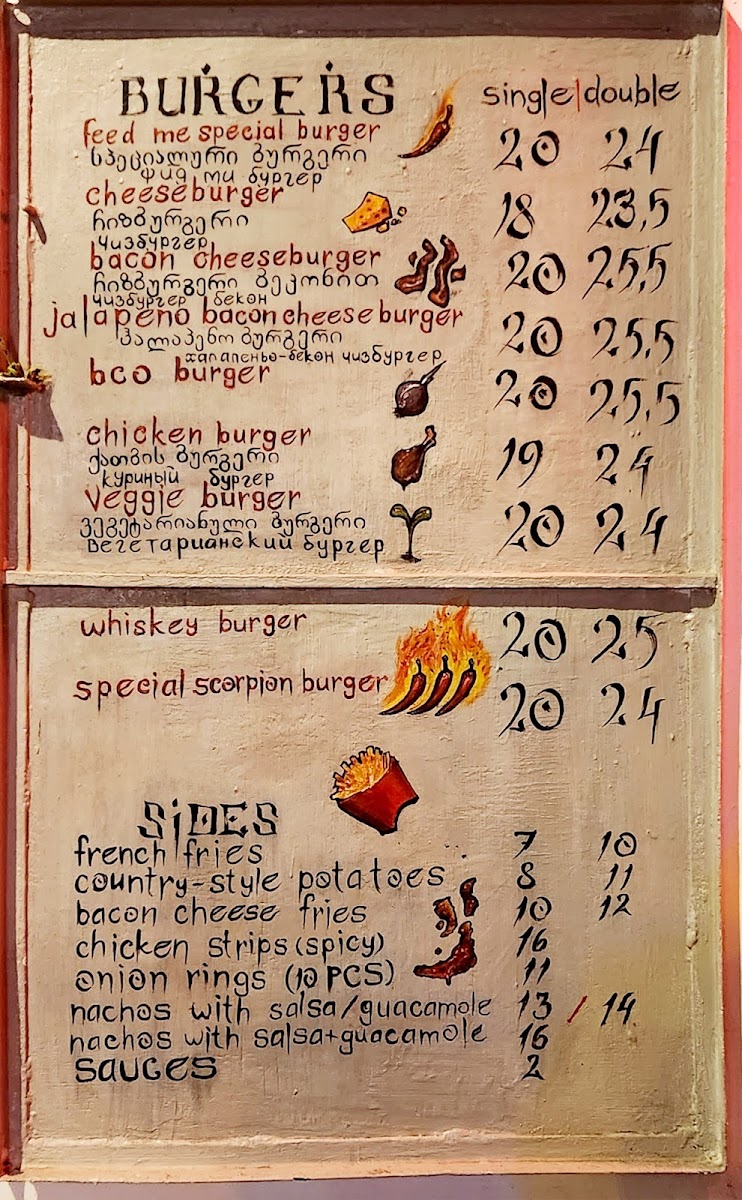 BURGERS single|double
feed me special burger 20 24
სპეციალური ბურგერი
фид ми бургер
cheeseburger 18 23,5
ჩიზბურგერი
чизбургер
bacon cheeseburger 20 25,5
ჩიზბურგერი ბეკონით
чизбургер бекон
jalapeno bacon cheeseburger 20 25,5
ჰალაპენო ბურგერი
халапеньо-бекон чизбургер
bco burger 20 25,5
chicken burger 19 24
ქათმის ბურგერი
куриный бургер
veggie burger 20 24
ვეგეტარიანული ბურგერი
вегетарианский бургер
whiskey burger 20 25
special scorpion burger 20 24
SiDES
french fries 7 10
country-style potatoes 8 11
bacon cheese fries 10 12
chicken strips (spicy) 16
onion rings (10 PCS) 11
nachos with salsa/guacamole 13 / 14
nachos with salsa+guacamole 16
sauces 2